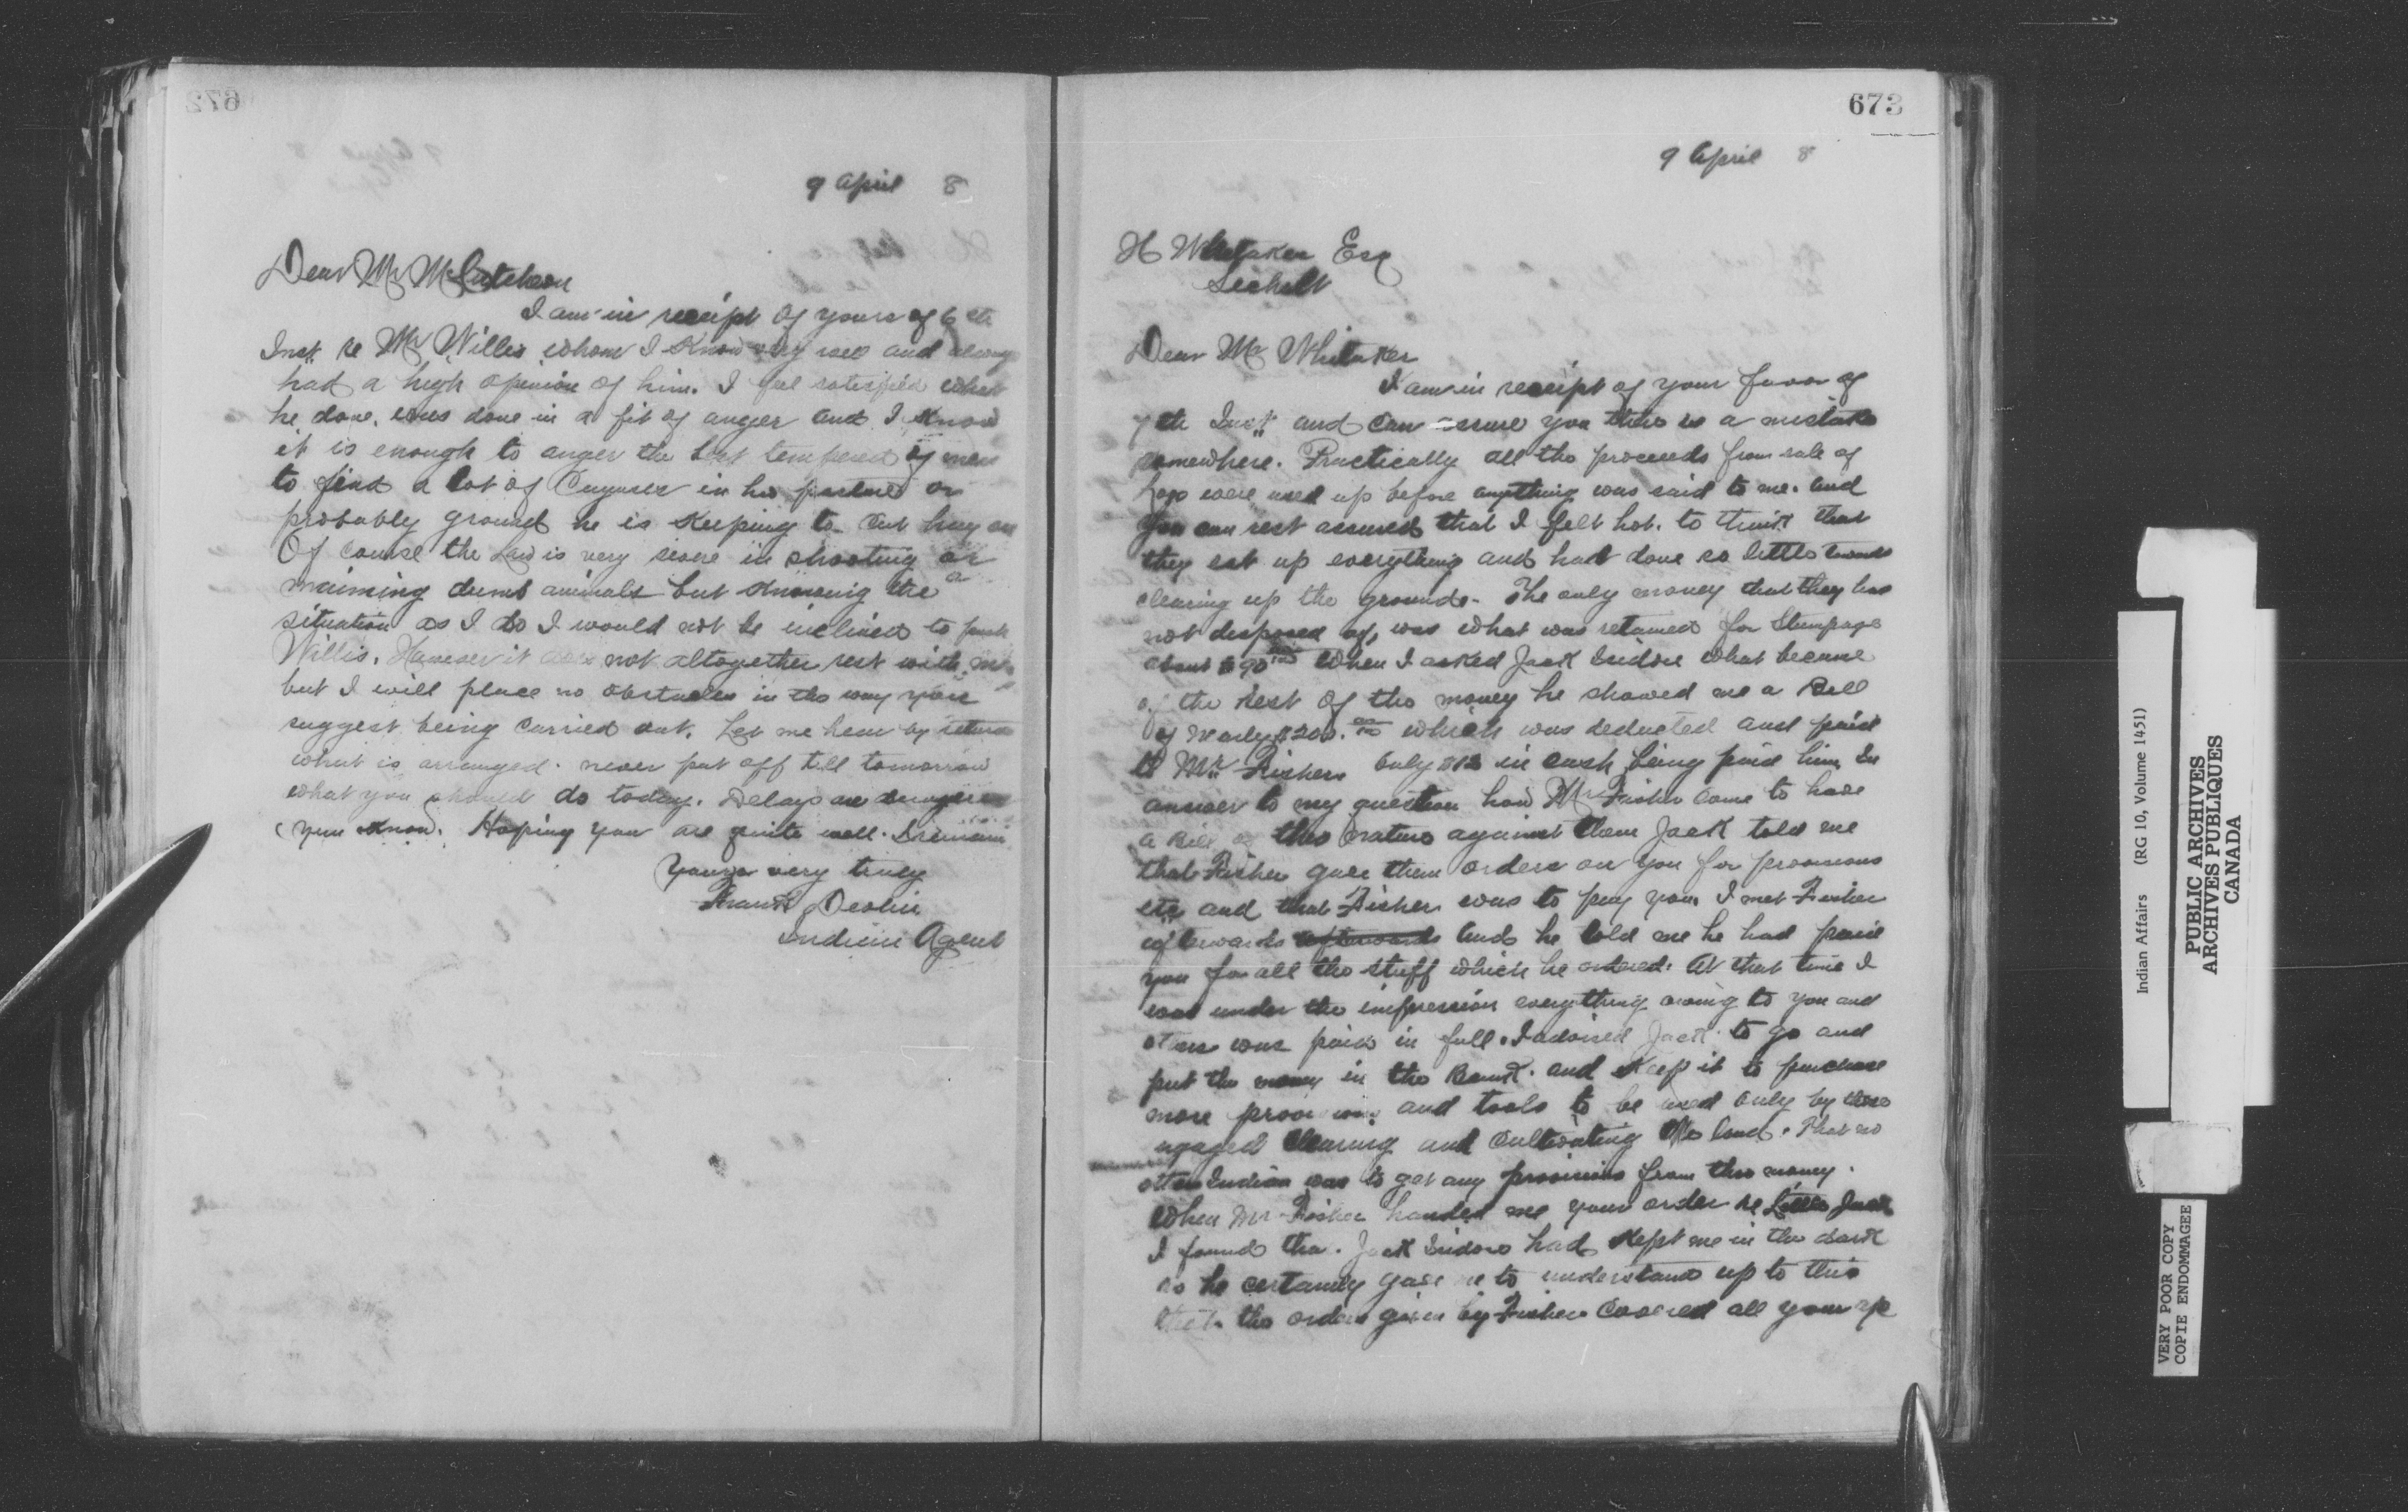 672
9 April 8
Dear Mr McCutcheon
I am in receipt of yours of 6th
Inst. re Mr Willis whom I know very well and always
had a high opinion of him. I feel satisfied what
he done, was done in a fit of anger and I know
it is enough to anger the best tempered of men
to find a lot of Cayuses in his pasture or
probably ground he is keeping to cut hay on
Of course the Law is very severe in shooting or
maiming dumb animals but knowing the
situation as I do I would not be inclined to push
Willis. However it does not altogether rest with me
but I will place no obstacles in the way your
suggest being carried out. Let me hear by return
what is arranged. never put off till tomorrow
what you should do today. Delays are dangerous
you know. Hoping you are quite well. I remain
Yours very truly
Frank Devlin
Indian Agent
673
9 April 8
H Whitaker Esq
Sechelt
Dear Mr Whitaker
I am in receipt of your favor of
7th Inst and can assure you there is a mistake
somewhere. Practically all the proceeds from sale of
logs were used up before anything was said to me. and
you can rest assured that I felt hot. to think that
they eat up everything and had done so little towards
clearing up the grounds. The only money that they has
not disposed of, was what was retained for Stumpage
about $90 When I asked Jack Isidore what became
of the rest of the money he showed me a Bill
of nearly $200. which was deducted and paid
to Mr Fisher. Only $12 in cash being paid him. In
answer to my question how Mr Fisher came to have
a Bill of this nature against them Jack told me
that Fisher gave them orders on you for provisions
etc and that Fisher was to pay you. I met Fisher
afterwards afterwards and he told me he had paid
you for all the stuff which he ordered. At that time I
was under the impression everything owing to you and
others was paid in full. I advised Jack to go and
put the money in the Bank. and keep it to purchase
more provisions and tools to be used only by those
ngaged Clearing and Cultivating the land. That no
other Indian was to get any provisions from this money.
When Mr Fisher handed me your order re Little Jack
I found tha. Jack Isidore had kept me in the dark
as he certainly gave me to understand up to this
that the orders given by Fisher covered all your a/c
Indian Affairs (RG 10, Volume 1451)
PUBLIC ARCHIVES
ARCHIVES PUBLIQUES
CANADA
VERY POOR COPY
COPIE ENDOMMAGEE